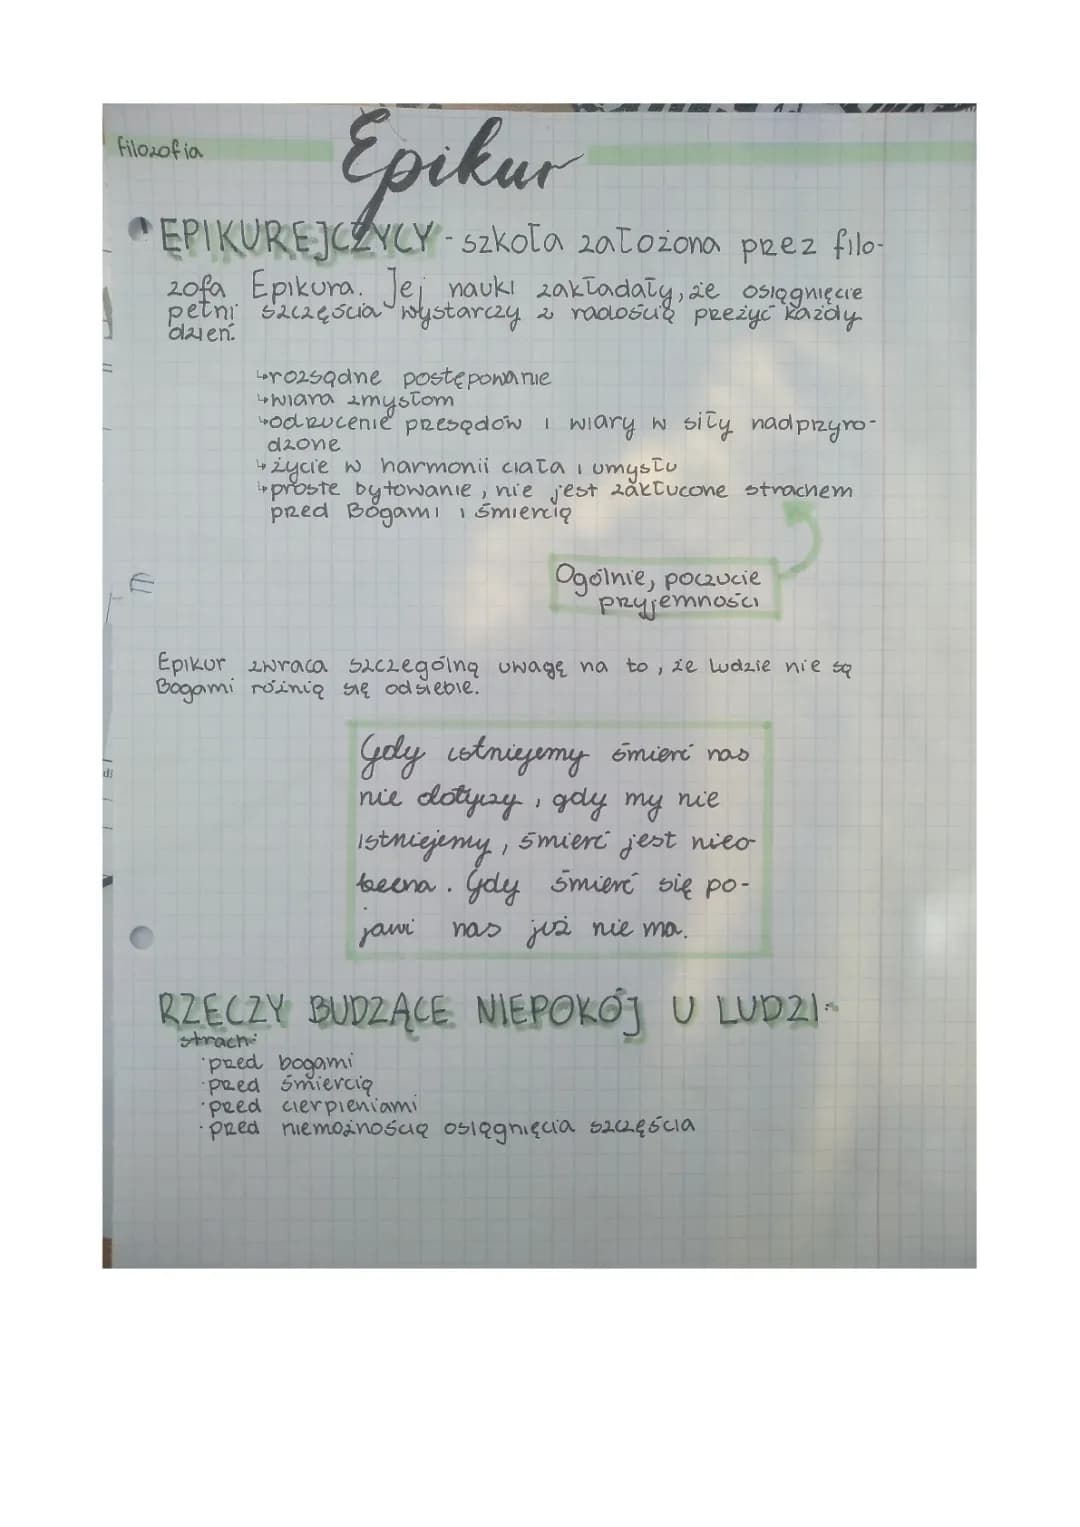 filozofia
Epikur
EPIKUREJCZYCY - szkoła założona przez filo-
zofa Epikura. Jej nauki zakładały, że osiągnięcie
pełni szczęścia wystarczy z radością przeżyć każdy
dzień.
↳rozsądne postępowanie
↳wiara zmysłom
↳odrzucenie przesądów i wiary w siły nadprzyro-
dzone
↳życie w harmonii ciała i umysłu
↳proste bytowanie, nie jest zakłucone strachem
przed Bogami i śmiercią
Ogólnie, poczucie
przyjemności
Epikur zwraca szczególną uwagę na to, że ludzie nie są
Bogami różnią się odsiebie.
Gdy istniejemy śmierć nas
nie dotyczy, gdy my nie
istniejemy, śmierć jest nieo-
becna. Gdy śmierć się po-
jawi nas już nie ma.
RZECZY BUDZĄCE NIEPOKÓJ U LUDZI:
strach:
·przed bogami
·przed śmiercią
·przed cierpieniami
·przed niemożnością osiągnięcia szczęścia